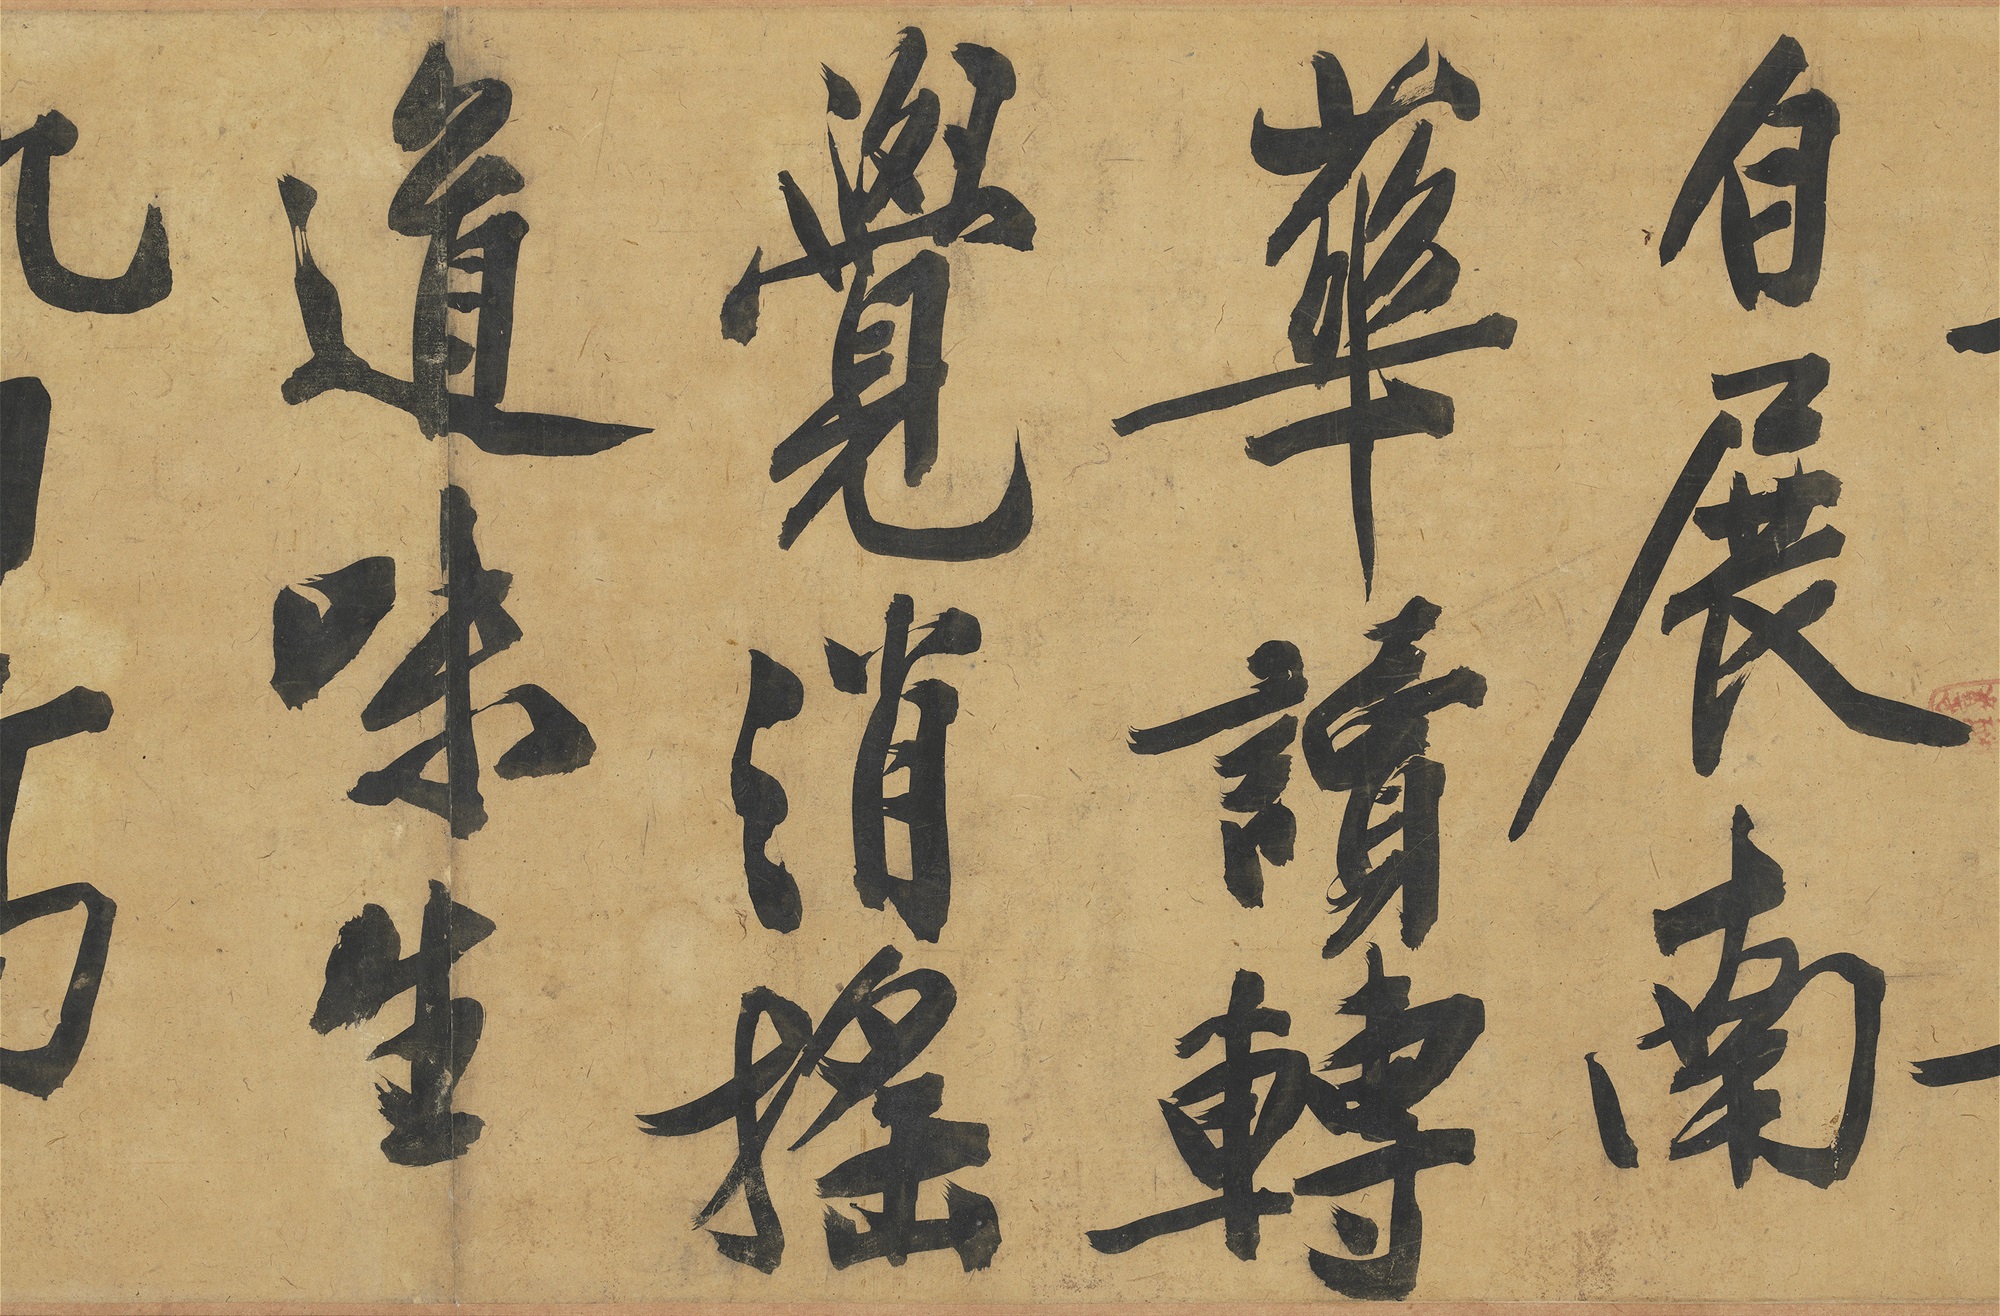 自展南
華讀轉
覺消搖
道味生